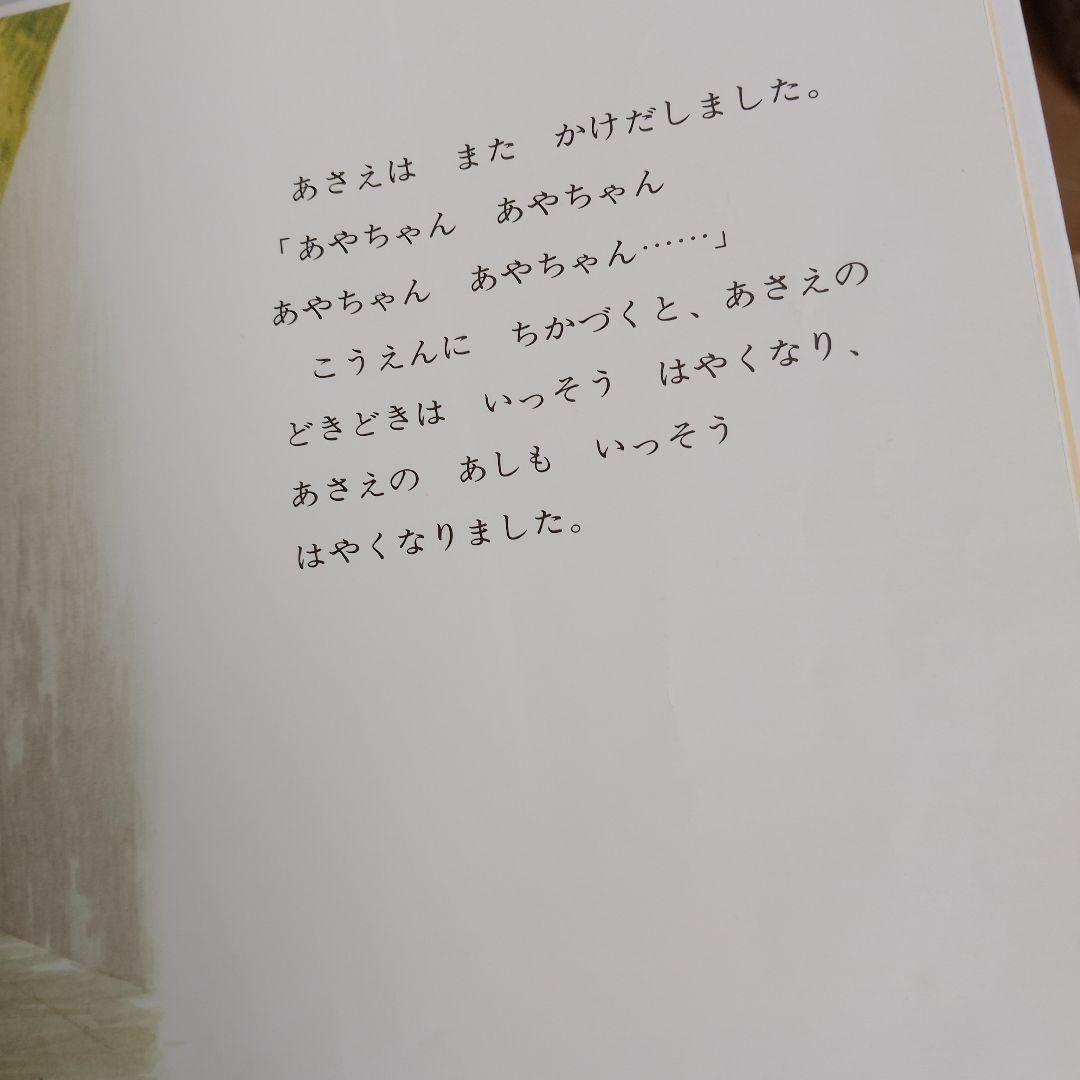 あさえは　また　かけだしました。
「あやちゃん　あやちゃん
あやちゃん　あやちゃん……」
こうえんに　ちかづくと、あさえの
どきどきは　いっそう　はやくなり、
あさえの　あしも　いっそう
はやくなりました。